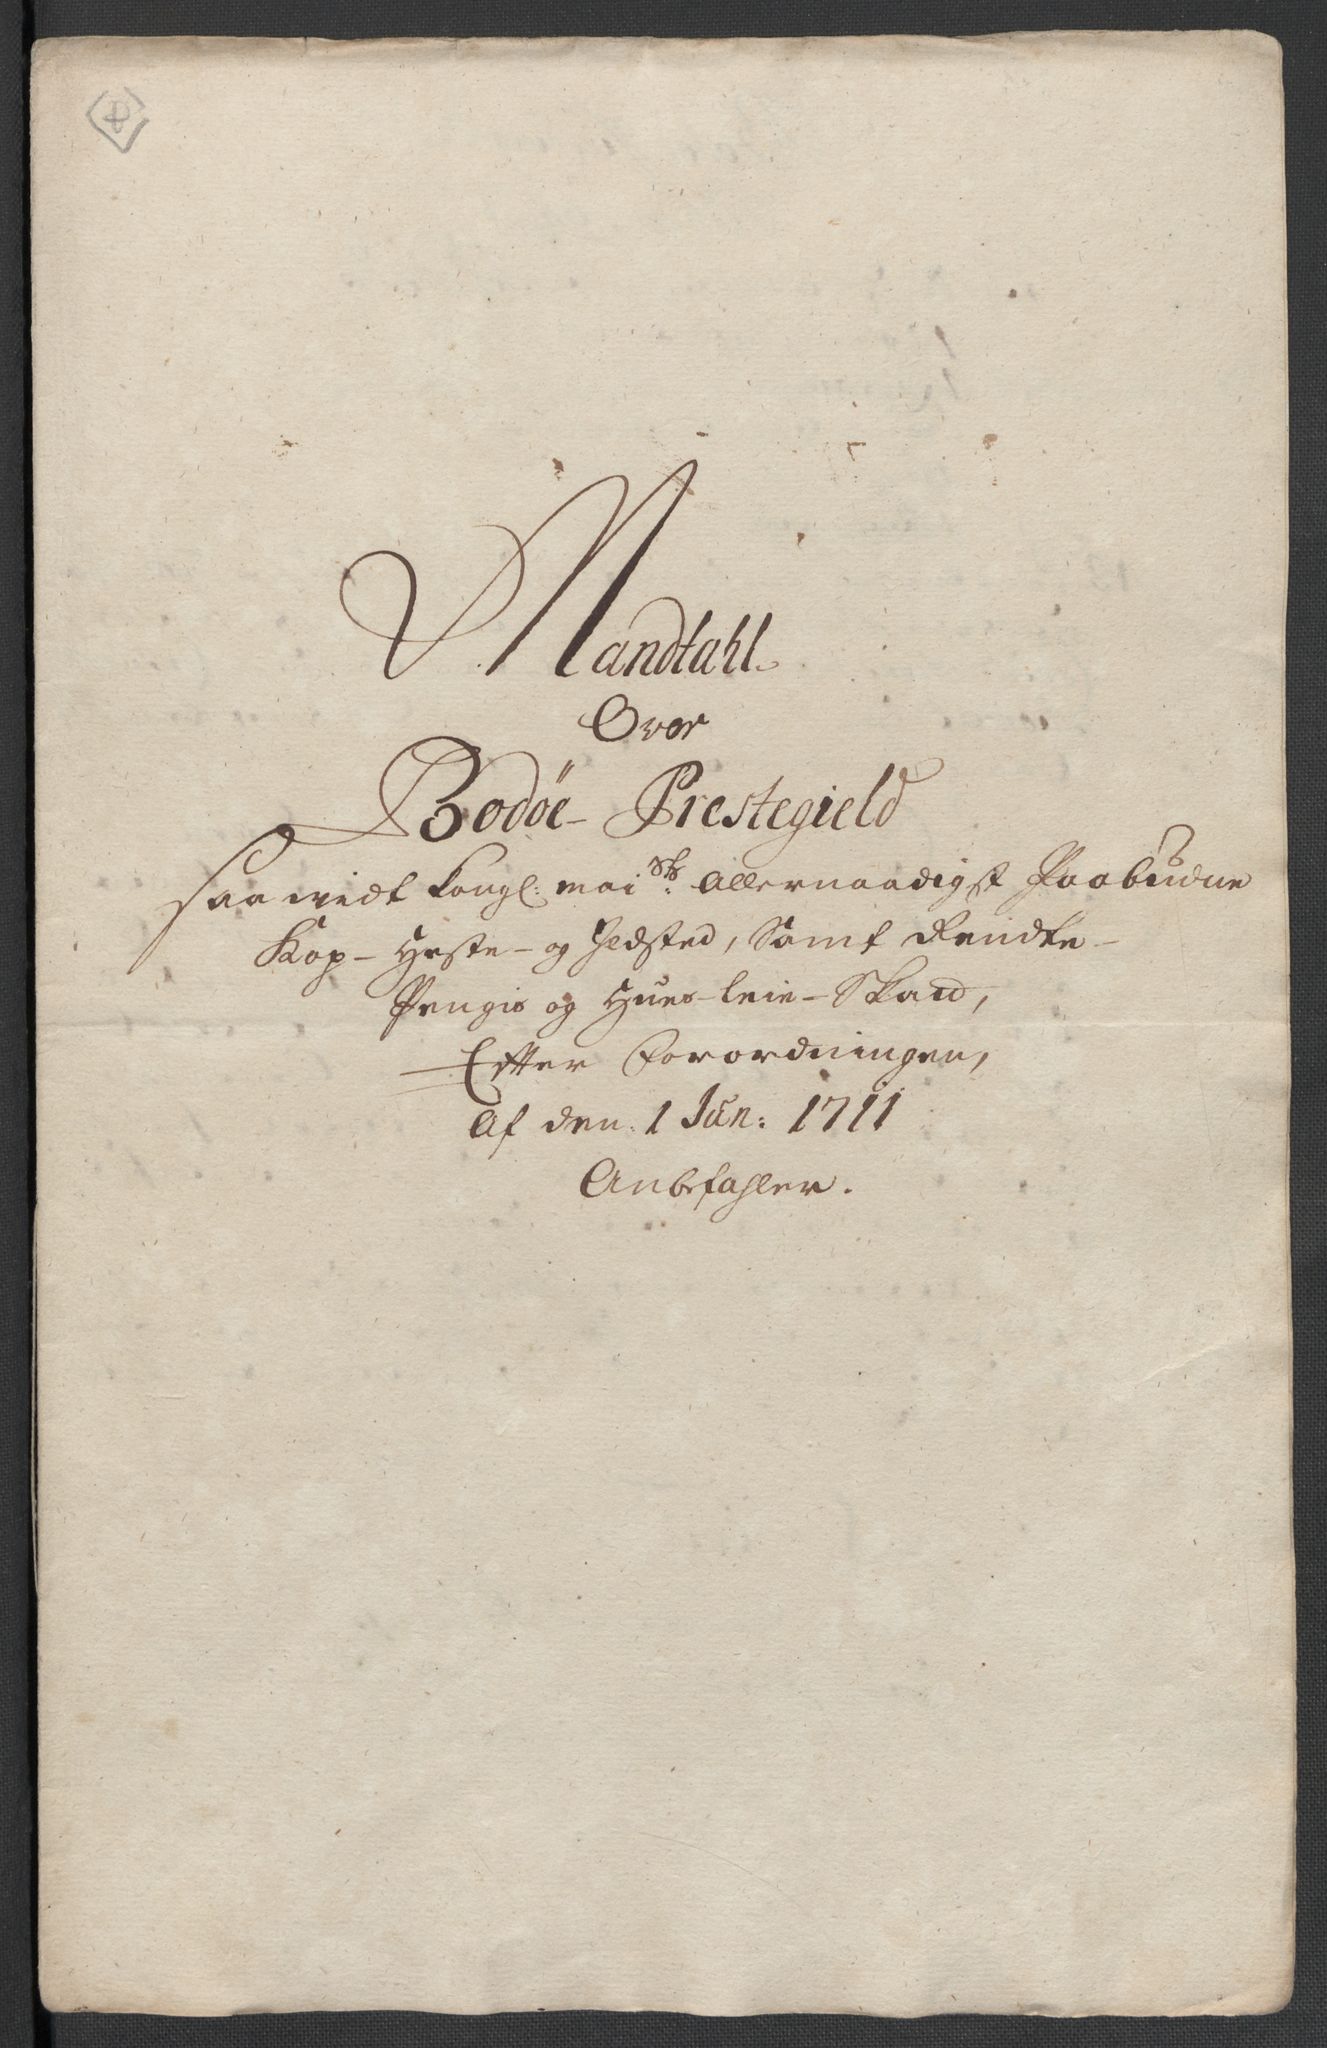 Mandtahl
Over
Bodøe Prestegield
saa widt Kongl: mai sts: Allernaadigst Paabudne
Kop- Heste- og Ildsted, Samt Rendte-
Pengis og Huus-leie-Skatt,
Efter Forordningen,
Af den. 1 Jan: 1711
Anbefahler.